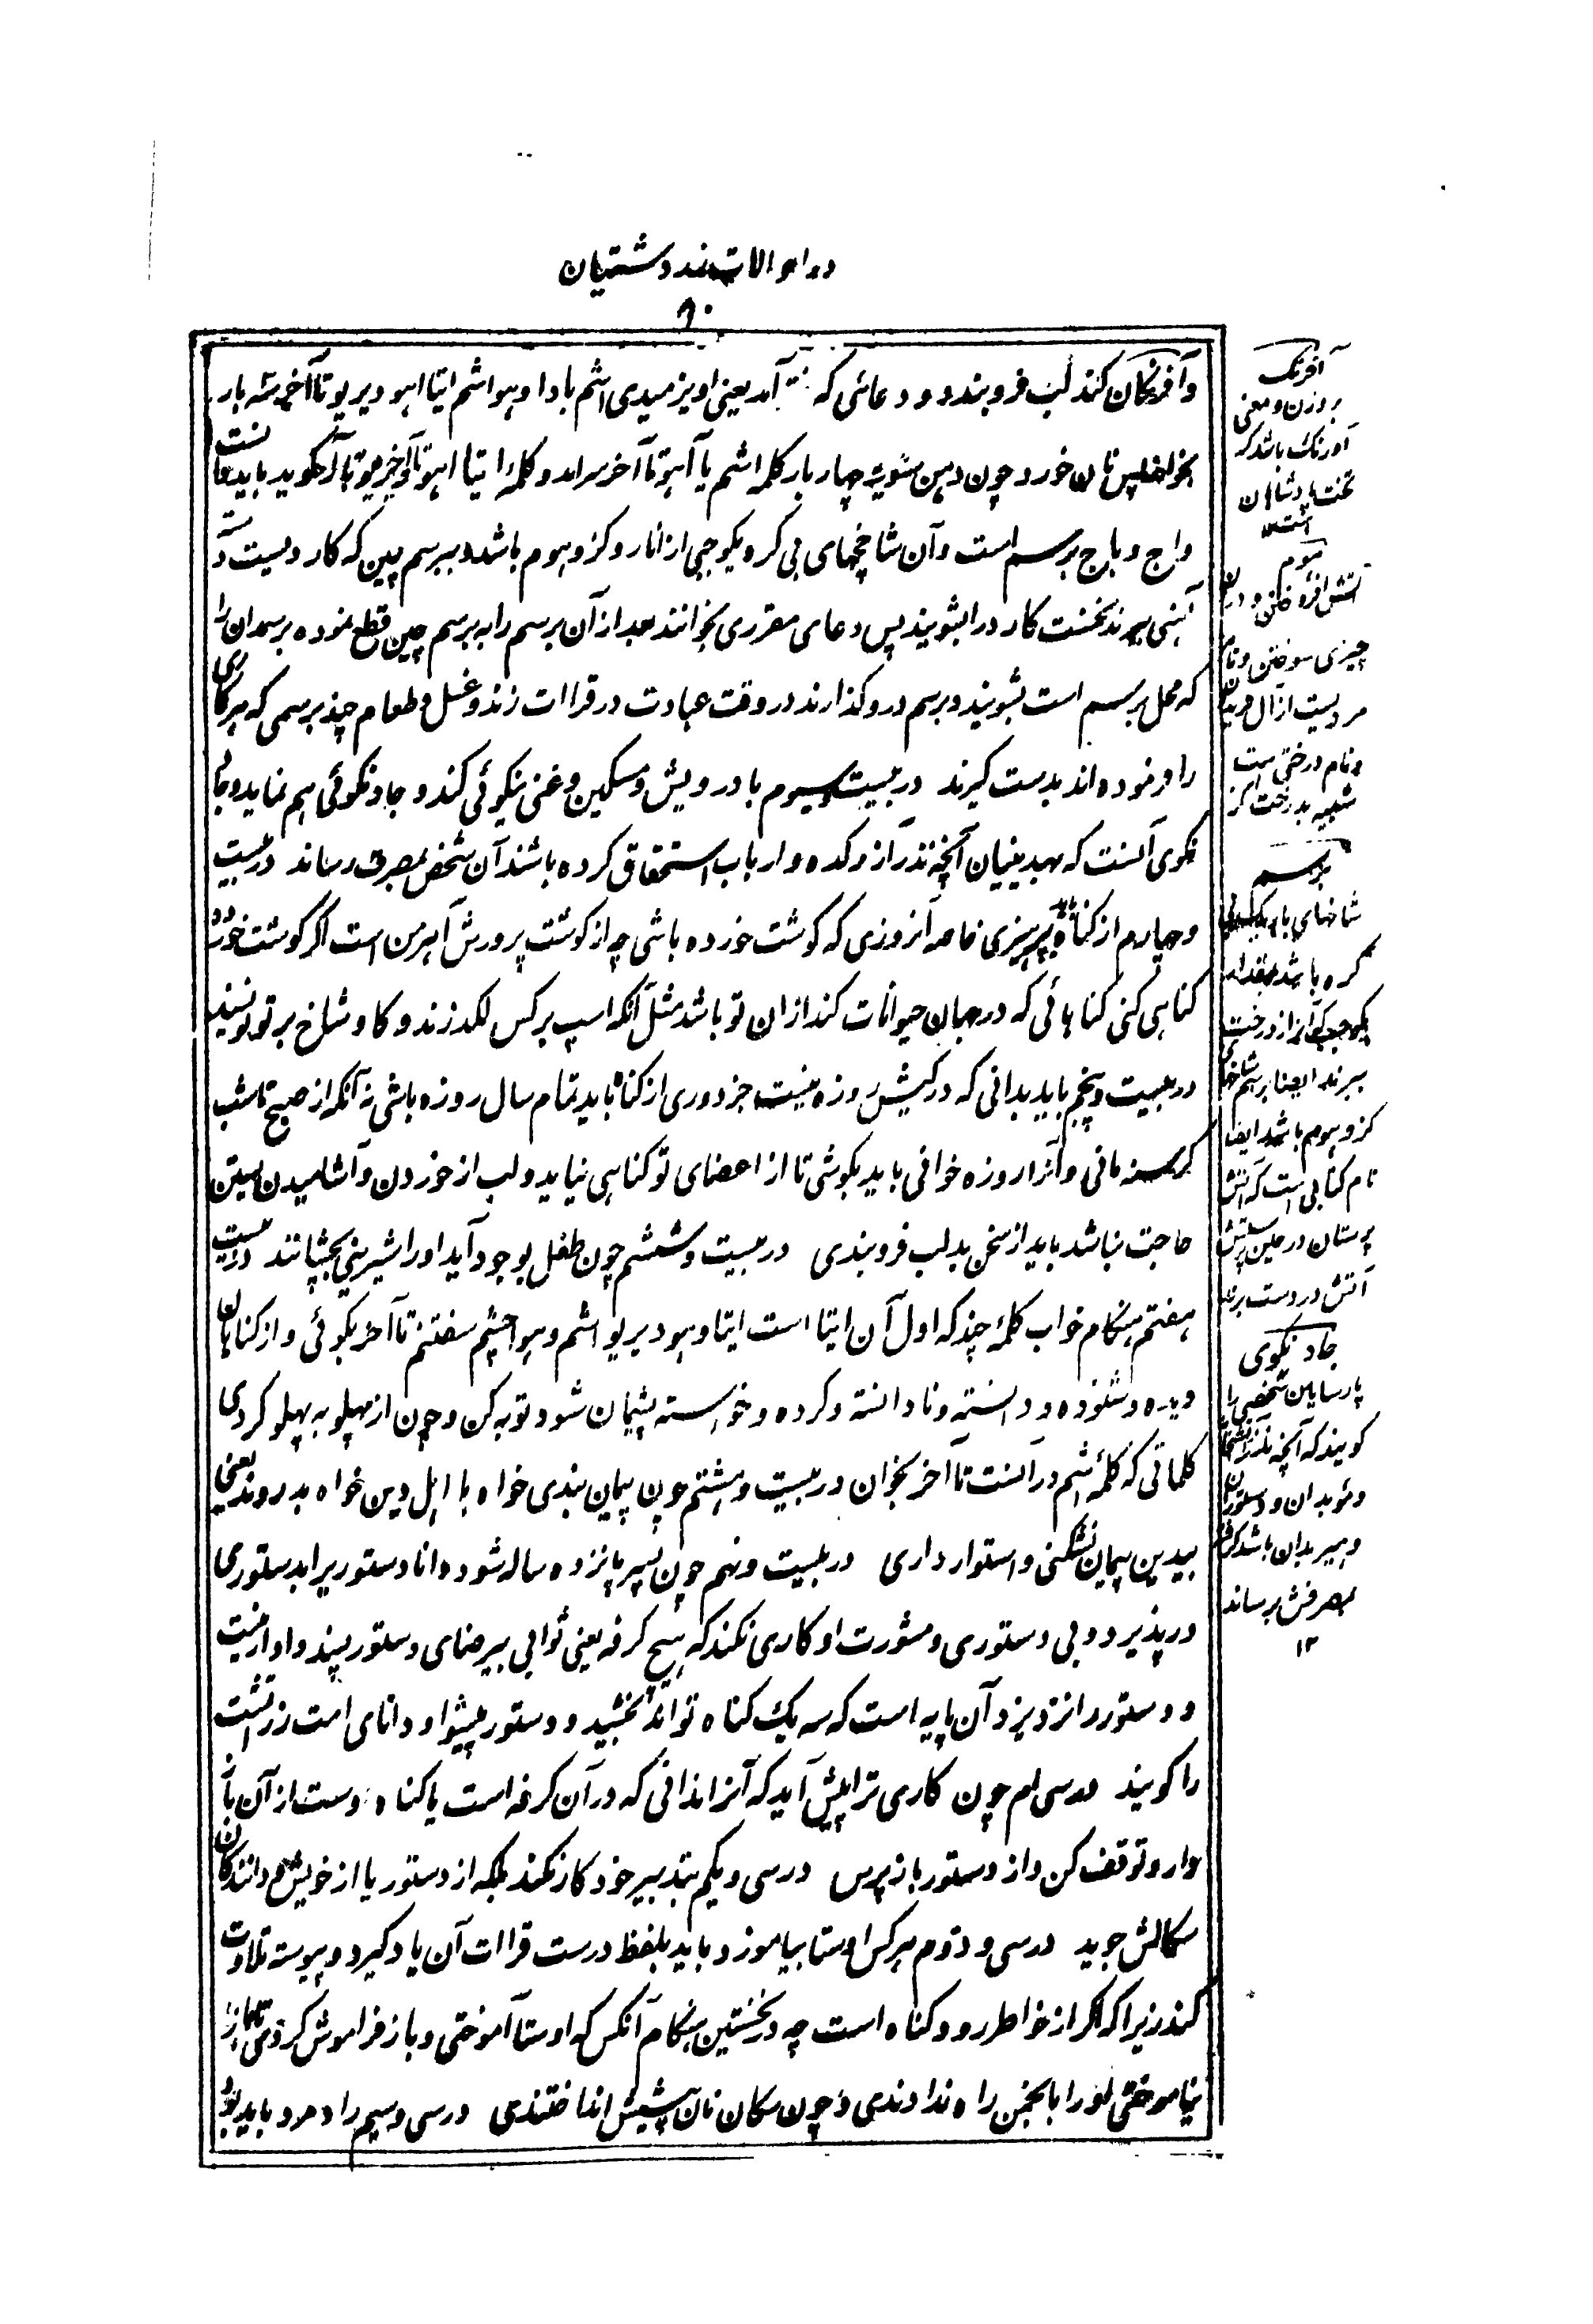 در احوالات زردشتیان
۹۰
وآفرنگان کند لب فروبندد و دعائی که آمد یعنی اویزمیدی اشم بادا وبهواشم ایتا اهو ویریو تا آخر سه بار
بخواند پس نان خورد و چون دهن بشوید چهار بار کلمه اشم یا آهو تا آخر سراید و کلمه ایتا اهو تا آخر گوید باید
واج و باج برسم است وآن شاخچهای بی گره یکوجبی از انار و گز و هوم باشد و ببرسم چین که کاردیست
آهنی ببرند نخست کارد را بشویند پس دعای مقرری بخوانند بعد از آن برسم را به برسم چین قطع نموده برسمدان را
که محل برسم است بشویند و برسم درو گذارند در وقت عبادت در قراات زند و غسل و طعام چند برسمی که هر کاری
را فرموده اند بدست گیرند در بیست وسیوم با درویش و مسکین و غنی نیکوئی کند و جادنگوئی هم نماید و جاد
نگوی آنست که بهدینیان آنچه نذر آذرکده و ارباب استحقاق کرده باشند آن شخص بمصرف رساند در بیست
وچهارم از گناه پرهیزی خاصه آنروزی که گوشت خورده باشی چه از گوشت پرورش آهرمن است اگر گوشت خورده
گناهی کنی گناهائی که در جهان حیوانات کند ازان تو باشد مثل آنکه اسپ برکس لگد زند و گاو شاخ بر تو نویسند
در بیست و پنجم باید بدانی که در کیش روزه نیست جز دوری از گناه باید تمام سال روزه باشی نه آنکه از صبح تا شب
گرسنه مانی و آنرا روزه خوانی باید بکوشی تا از اعضای تو گناهی نیاید و لب از خوردن وآشامیدن بستن
حاجت نباشد باید از سخن بد لب فروبندی در بیست و ششم چون طفل بوجود آید اورا شیرینی بچشانند در بیست
هفتم هنگام خواب کلمه چند که اول آن ایتا است ایتا وهو ویریو اشم وهو اخیشم سفتنم تا آخر بگوئی و از گناهان
دیده و شنوده و دانسته و نادانسته و کرده و خواسته پشیمان شو و توبه کن و چون از پهلو به پهلو گردی
کلماتی که کلمه اشم درآنست تا آخر بخوان در بیست و هشتم چون پیمان بندی خواه با اهل دین خواه بدروند یعنی
بیدین پیمان نشکنی و استوار داری در بیست ونهم چون پسر پانزده ساله شود دانا دستوریرا بدستوری
درپذیرد و بی دستوری و مشورت او کاری نکند که هیچ کرفه یعنی ثوابی بیرضای دستور پسند دادار نیست
و دستور را نزد یزد آن پایه است که سه یک گناه تواند بخشید و دستور پیشوا و دانای امت زرتشت
را گویند در سی ام چون کاری ترا پیش آید که آنرا ندانی که در آن کرفه است یا گناه دست از آن باز
دار و توقف کن و از دستور باز پرس در سی ویکم بتدبیر خود کار نکند بلکه از دستور یا از خویش و دانندگان
سگالش جوید در سی و دوم هرکس اوستا بیاموزد باید بلفظ درست قراات آن یاد گیرد و پیوسته تلاوت
کند زیرا که اگر از خاطر رود گناه است چه در نخستین هنگام آنکس که اوستا آموختی و باز فراموش کردی تا باز
نیاموختی اورا بانجمن راه ندادندی و چون سگان نان پیشش انداختندی در سی وسیم راد مرد باید بود
آفرنگ
بروزن و معنی
اورنگ باشد که
تخت پادشاهان
است
هوم
آتش افروختن و دران
چیزی سوختن و نام
مردیست از آل فریدون
ونام درختی است
شبیه بدرخت گز
برسم
شاخهای باریک بی
گره باشد بمقدار
یکوجب که آنرا از درخت
ببرند ایضا برسم شاخهای
گز و هوم باشد ایضا
نام کتابی است که آتش
پرستان در حین پرستش
آتش در دست برند
جادنگوی
پارسایان شخصی را
گویند که آنچه نذر آتشخانها
وموبدان و دستوران
و هیربدان باشد گرفته
بمصرفش برساند
۱۲